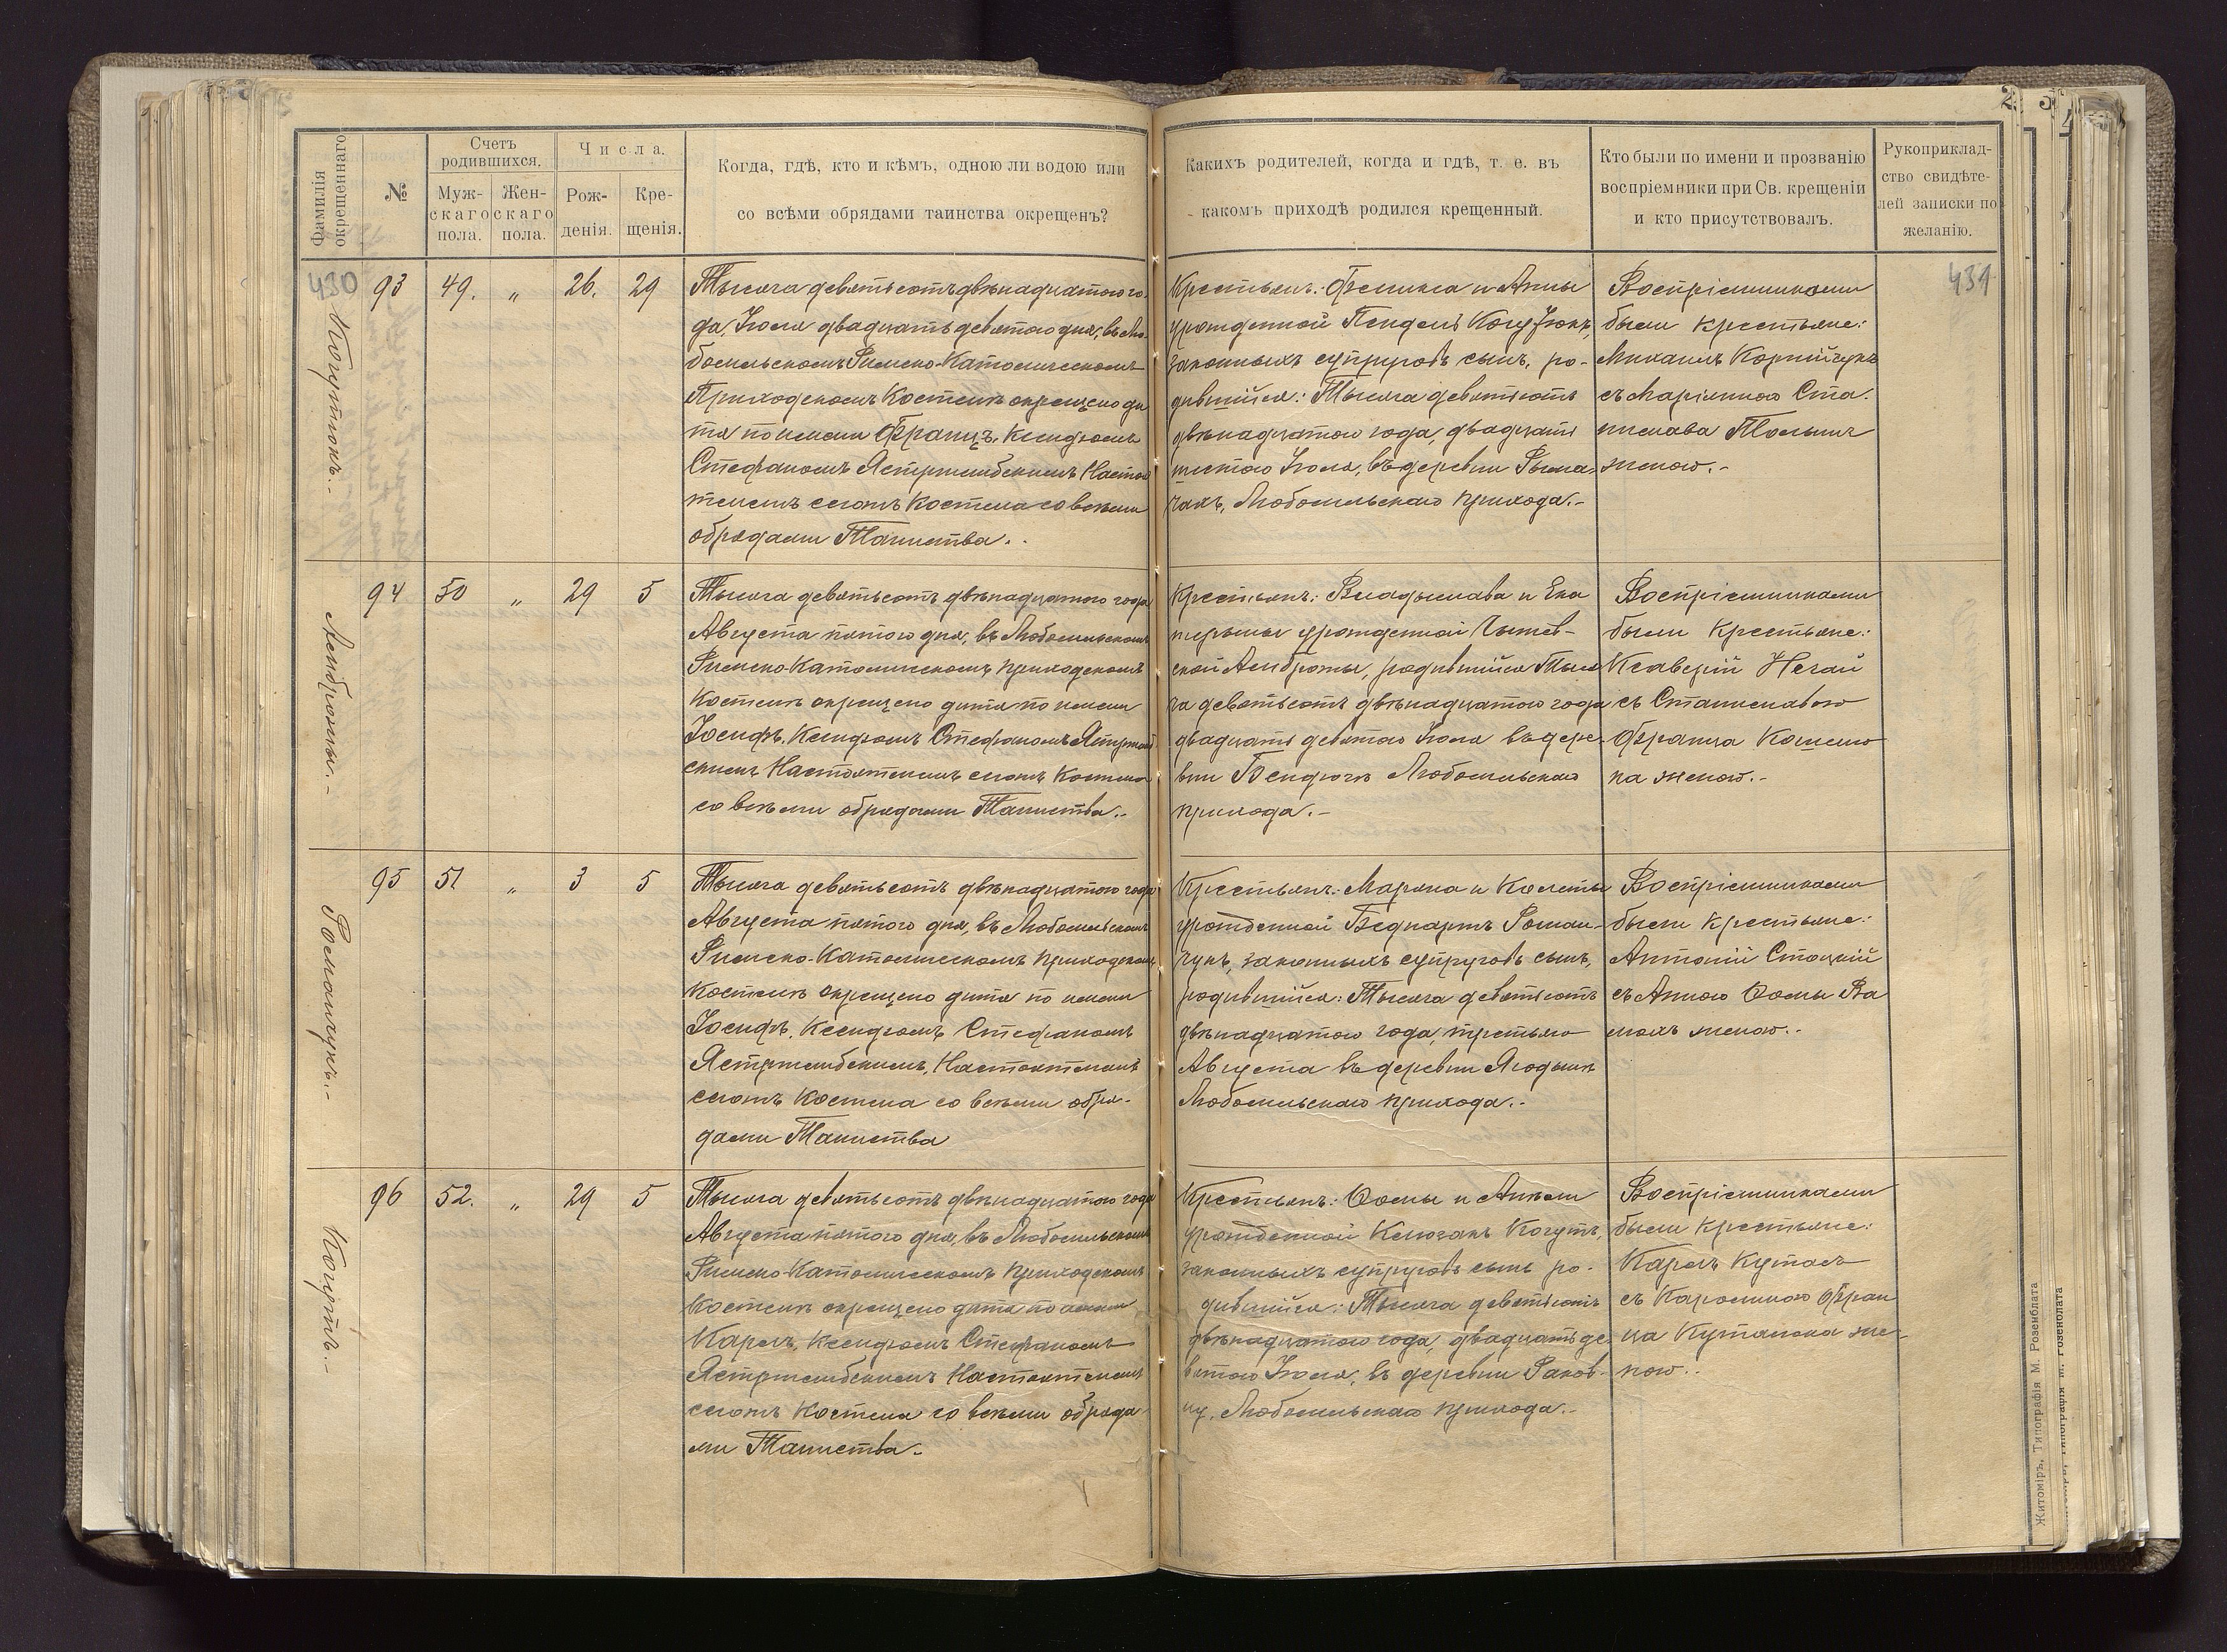 Фамилія окрещеннаго
№
Счетъ родившихся.
Мужскаго пола.
Женскаго пола.
Числа.
Рожденія.
Крещенія.
Когда, гдѣ, кто и кѣмъ, одною ли водою или
со всѣми обрядами таинства окрещенъ?
Какихъ родителей, когда и гдѣ, т. е. въ
какомъ приходѣ родился крещенный.
Кто были по имени и прозванію
воспріемники при Св. крещеніи
и кто присутствовалъ.
Рукоприклад-
ство свидѣте-
лей записки по
желанію.
430
431
93 49. „ 26. 29
Тысяча девятьсотъ двѣнадцатого го-
да, Іюля двадцать девятого дня, въ Лю-
бомльскомъ Римско-Католическомъ
Приходскомъ Костелѣ окрещено ди
тя по имени Францъ, Ксендзомъ
Стефаномъ Ястржембскимъ Настоя
телемъ сего Костела со всѣми
обрядами Таинства.
Крестьянъ: Феликса и Анны
урожденной Пендель Когутюкъ,
законныхъ супруговъ сынъ, ро-
дившійся: Тысяча девятьсотъ
двѣнадцатого года, двадцать
шестого Іюля, въ деревни Рыма-
чахъ, Любомльскаго прихода.-
Воспріемниками
были крестьяне:
Михаилъ Корнійчукъ
съ Маріанною Ста-
нислава
женою.-
Когутюкъ.-
94 50 „ 29 5
Тысяча девятьсотъ двѣнадцатого года
Августа пятого дня, въ Любомльскомъ
Римско-Католическомъ Приходскомъ
Костелѣ окрещено дитя по имени
Іосифъ, Ксендзомъ Стефаномъ Ястржемб
скимъ Настоятелемъ сего Костела
со всѣми обрядами Таинства.-
Крестьянъ: Владыслава и Ека
терыны урожденной
родившійся Тыся
ча девятьсотъ двѣнадцатого года
двадцать девятого Іюля въ дере-
вни Бендюгѣ Любомльскаго
прихода.-
Воспріемниками
были Крестьяне:
Ксаверій Нечай
съ Станиславою
Франца
на женою.-
95 51 „ 3 5
Тысяча девятьсотъ двѣнадцатого года
Августа пятого дня, въ Любомльскомъ
Римско-Католическомъ Приходскомъ
Костелѣ окрещено дитя по имени
Іосифъ, Ксендзомъ Стефаномъ
Ястржембскимъ, Настоятелемъ
сего Костела со всѣми обря-
дами Таинства
Крестьянъ: Маряна и Колеты
урожденной Беднаржъ Роман-
чукъ, законныхъ супруговъ сынъ,
родившійся: Тысяча девятьсотъ
двѣнадцатого года, третьяго
Августа въ деревни Ягодынѣ
Любомльскаго прихода.-
Воспріемниками
были крестьяне:
Антоній Стоцкій
съ Анною Ѳомы Ва
женою.-
Романчукъ.-
96 52. „ 29 5
Тысяча девятьсотъ двѣнадцатого года
Августа пятого дня, въ Любомльскомъ
Римско-Католическомъ Приходскомъ
Костелѣ окрещено дитя по имени
Кароль, Ксендзомъ Стефаномъ
Ястржембскимъ Настоятелемъ
сего Костела со всѣми обряда-
ми Таинства.
Крестьянъ: Ѳомы и Анели
урожденной Когутъ,
законныхъ супруговъ сынъ ро-
дившійся: Тысяча девятьсотъ
двѣнадцатого года, двадцать де
вятого Іюля, въ деревни Раков-
цу, Любомльскаго прихода.-
Воспріемниками
были крестьяне:
Кароль
съ Каролиною Фран
ца же-
ною.
Когутъ.-
Житомiръ, Типографія М. Розенблата